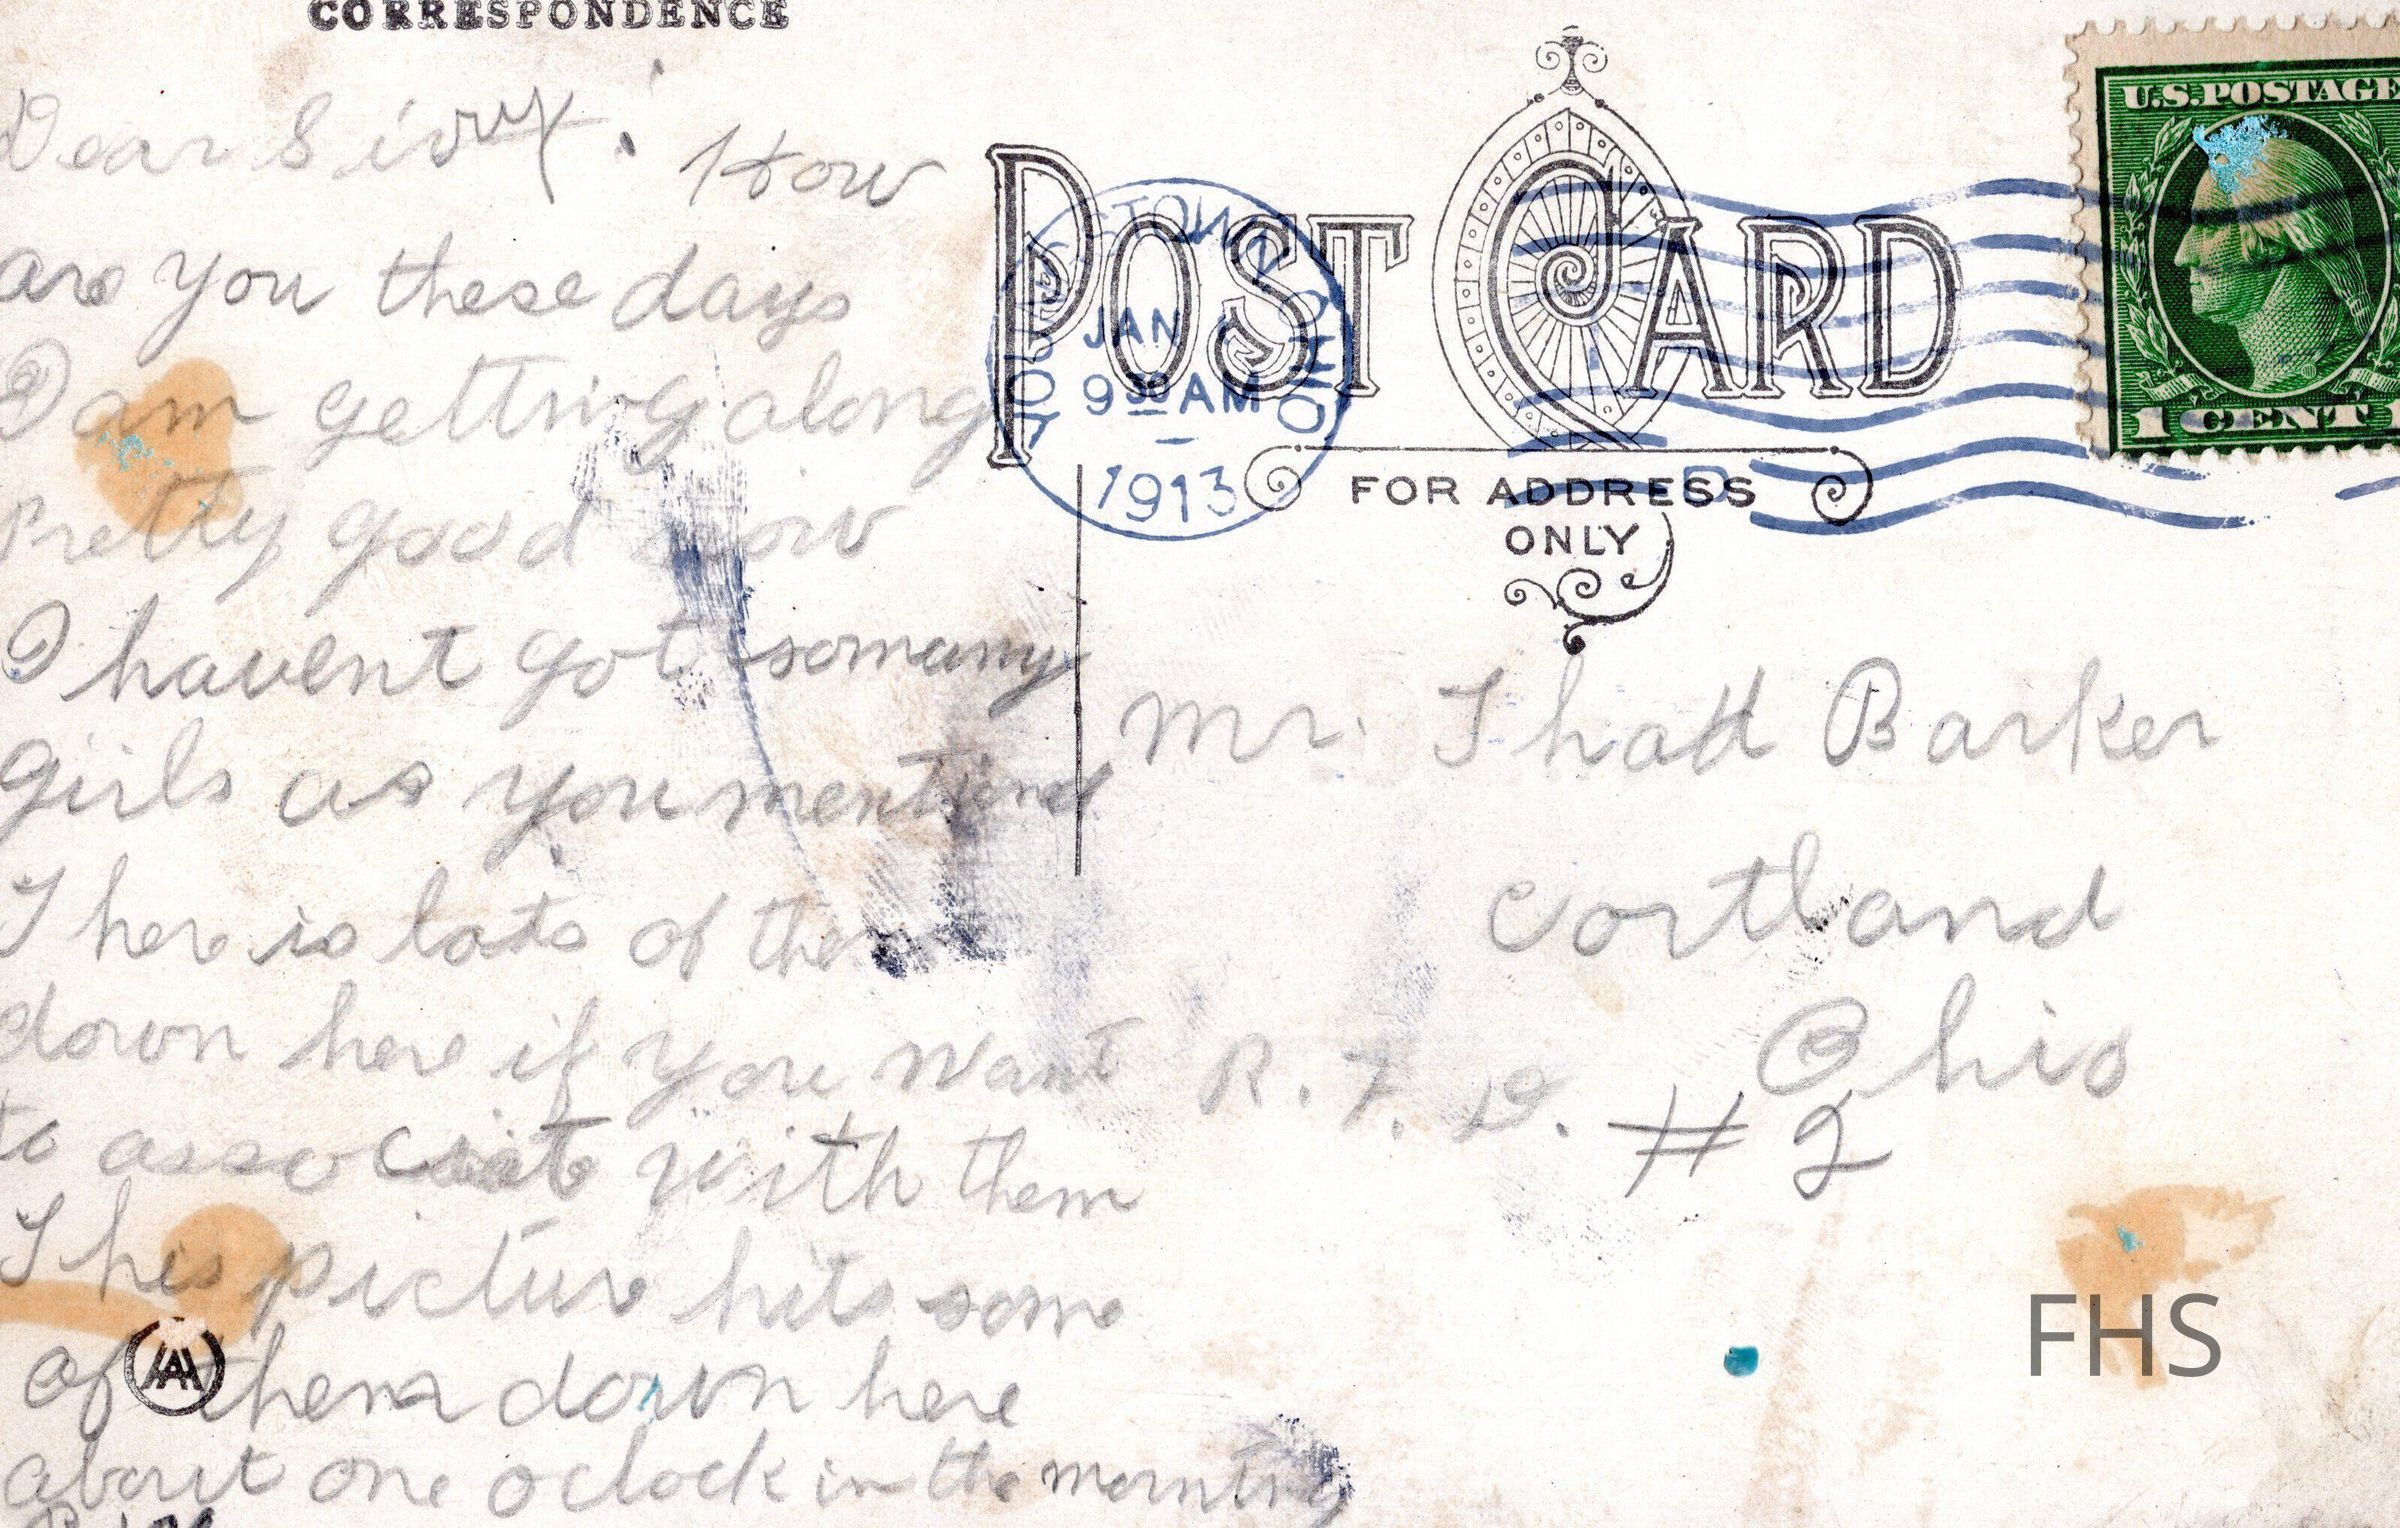 CORRESPONDENCE
Dear How
are you these days
I am getting along
Pretty good now
I havent got somany
girls as you mentiond
There is lots of them
down here if you want
to associet with them
This picture hits some
of them down here
about one oclock in the morning
POST CARD
FOR ADDRESS
ONLY
YOUNGSTOWN OHIO
JAN
9 30 AM
1913
U.S.POSTAGE
1 CENT 1
Mr. Thad Barker
Cortland
Ohio
R. F. D. # 2
FHS